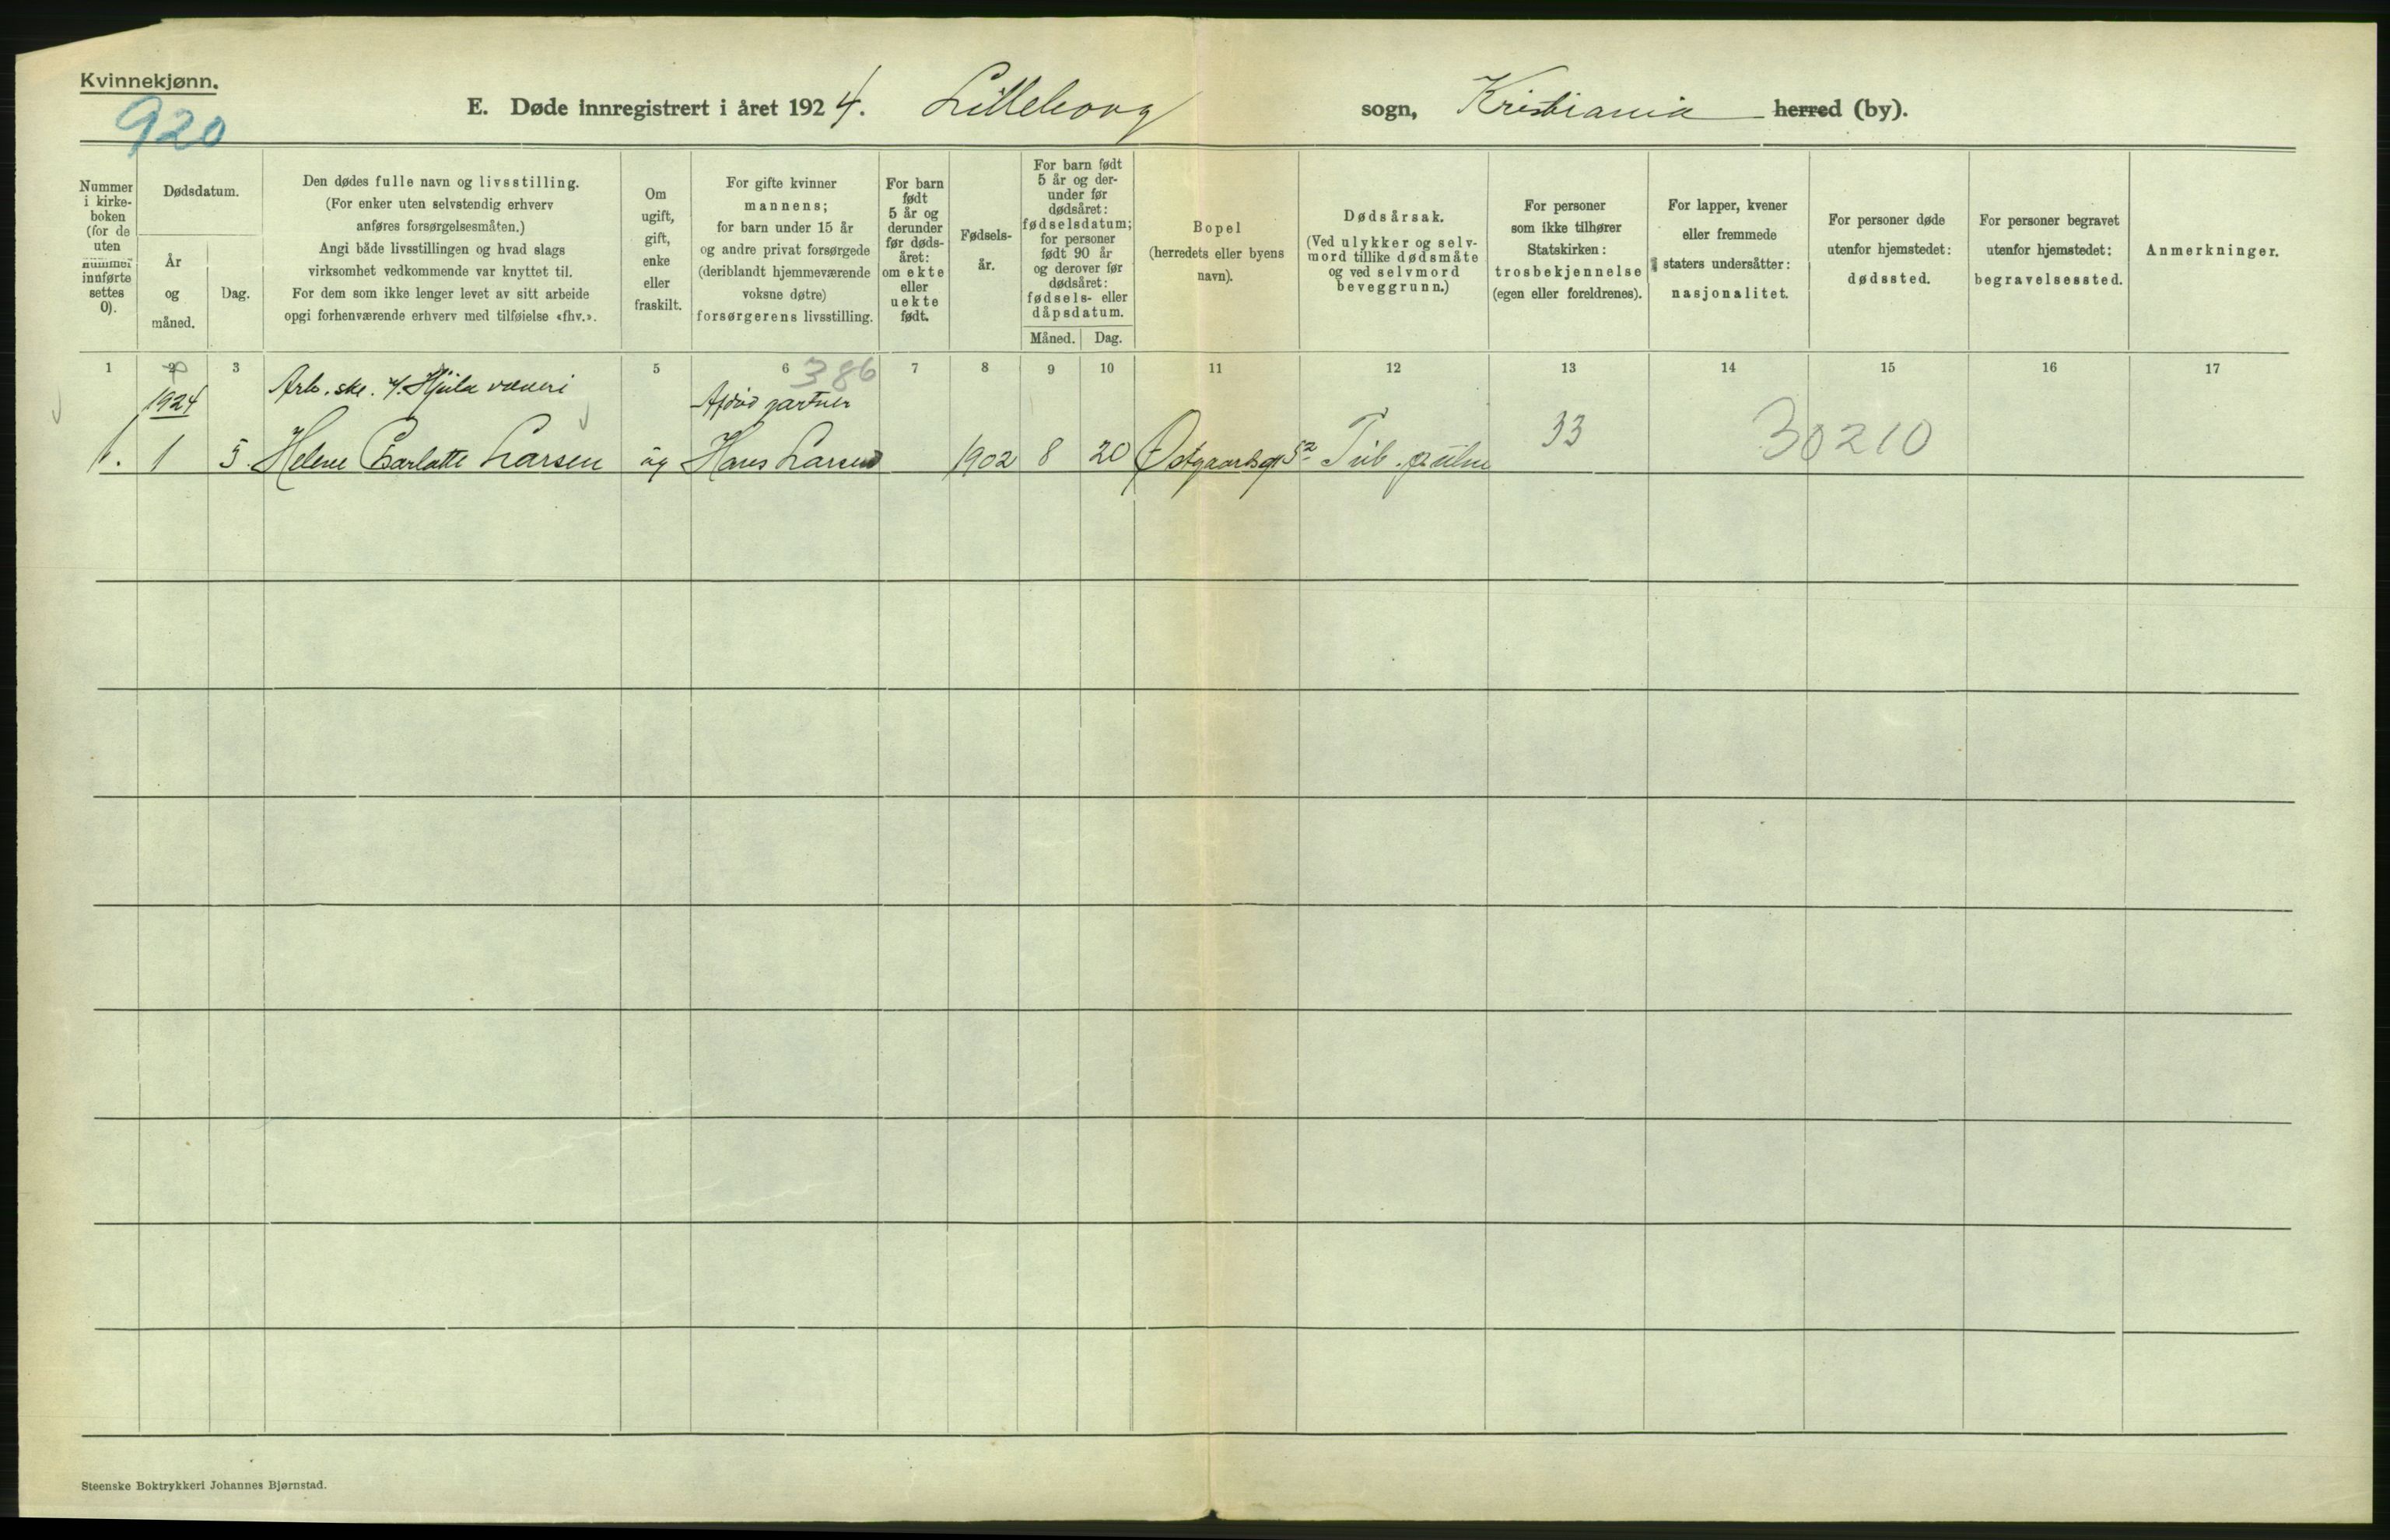 Kvinnekjønn.
920
E. Døde innregistrert i året 1924. Lilleborg sogn, Kristiania herred (by).
Nummer i kirke- boken (for de uten nummer innførte settes 0).
Dødsdatum.
År og måned.
Dag.
Den dødes fulle navn og livsstilling.
(For enker uten selvstendig erhverv
anføres forsørgelsesmåten.)
Angi både livsstillingen og hvad slags
virksomhet vedkommende var knyttet til.
For dem som ikke lenger levet av sitt arbeide
opgi forhenværende erhverv med tilføielse «fhv.».
Om
ugift,
gift,
enke
eller
fraskilt.
For gifte kvinner
mannens;
for barn under 15 år
og andre privat forsørgede
(deriblandt hjemmeværende
voksne døtre)
forsørgerens livsstilling.
For barn
født
5 år og
derunder
før døds-
året:
om ekte
eller
uekte
født.
Fødsels-
år.
For barn født
5 år og der-
under før
dødsåret:
fødselsdatum;
for personer
født 90 år
og derover før
dødsåret:
fødsels- eller
dåpsdatum.
Måned. Dag.
Bopel
(herredets eller byens
navn).
Dødsårsak.
(Ved ulykker og selv-
mord tillike dødsmåte
og ved selvmord
beveggrunn.)
For personer
som ikke tilhører
Statskirken:
trosbekjennelse
(egen eller foreldrenes).
For lapper, kvener
eller fremmede
staters undersåtter:
nasjonalitet.
For personer døde
utenfor hjemstedet:
dødssted.
For personer begravet
utenfor hjemstedet:
begravelsessted.
Anmerkninger.
1 2 3 5 6 7 8 9 10 11 12 13 14 15 16 17
386
1924 Arb. ske. v. Hjula væveri Afdød gartner
1. 1 5. Helene Charlotte Larsen ug Hans Larsen 1902 8 20 Østgaardsgt 52 Tub. pulm 33 30210
Steenske Boktrykkeri Johannes Bjørnstad.